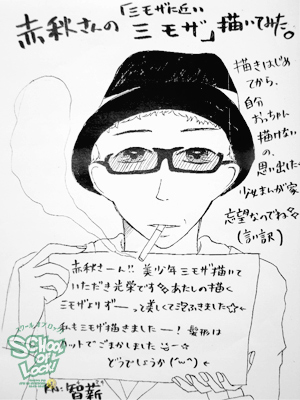 赤秋さんの「ミモザに近い
ミモザ」描いてみた。
描きはじめ
てから、
自分
おっちゃん
描けない
の、
思い出した
少女まんが家
志望なのでね
(言い訳)
赤秋さーん!! 美少年ミモザ描いて
いただき光栄です あたしの描く
ミモザよりずーっと美しくて泡ふきました☆
私もミモザ描きましたー! 髪形は
カットでごまかしました
どうでしょうか
スクールオブロック
SCHOOL OF LOCK!
智薪